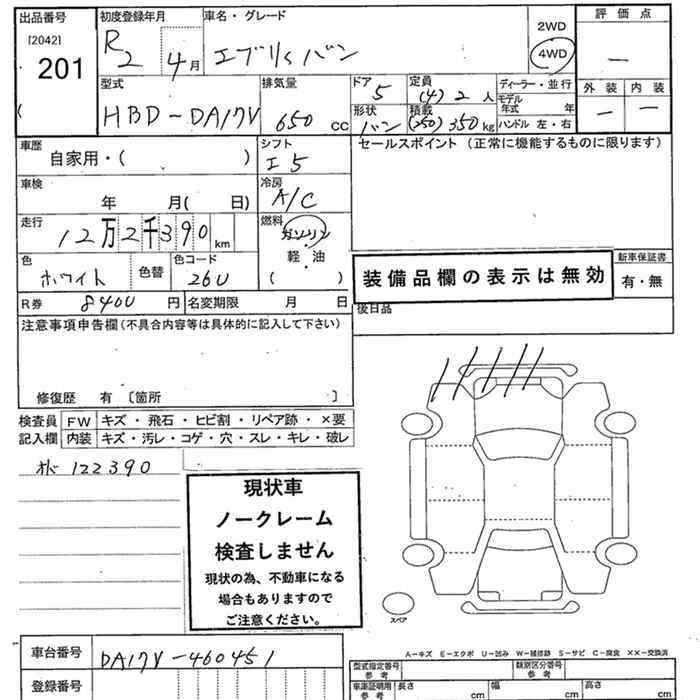 出品番号 初度登録年月 車名・グレード 2WD 評価点
[2042] 201 R2 4月 エブリィバン 4WD —
型式 排気量 ドア 5 定員 (4) 2人 ディーラー・並行 外装 内装
HBD-DA17V 650cc 形状 バン 積載 (250) 350kg モデル年式 年 — —
ハンドル 左・右
車歴 自家用・( ) シフト I5 セールスポイント(正常に機能するものに限ります)
車検 年 月( 日) 冷房 A/C
走行 12万2千390km 燃料 ガソリン・軽油 ( )
色 ホワイト 色替 色コード 26U 装備品欄の表示は無効 新車保証書 有・無
R券 8400円 名変期限 月 日 後日品
注意事項申告欄(不具合内容等は具体的に記入して下さい)
修復歴 有 〔箇所 〕
検査員記入欄 FW キズ・飛石・ヒビ割・リペア跡・×要
内装 キズ・汚レ・コゲ・穴・スレ・キレ・破レ
122390
現状車
ノークレーム
検査しません
現状の為、不動車になる
場合もありますので
ご注意ください。
スペア
A-キズ E-エクボ U-凹み W-補修跡 S-サビ C-腐食 XX-交換済
車台番号 DA17V-460451
型式指定番号 参考 類別区分番号 参考
登録番号 車庫証明用 参考 長さ cm 幅 cm 高さ cm